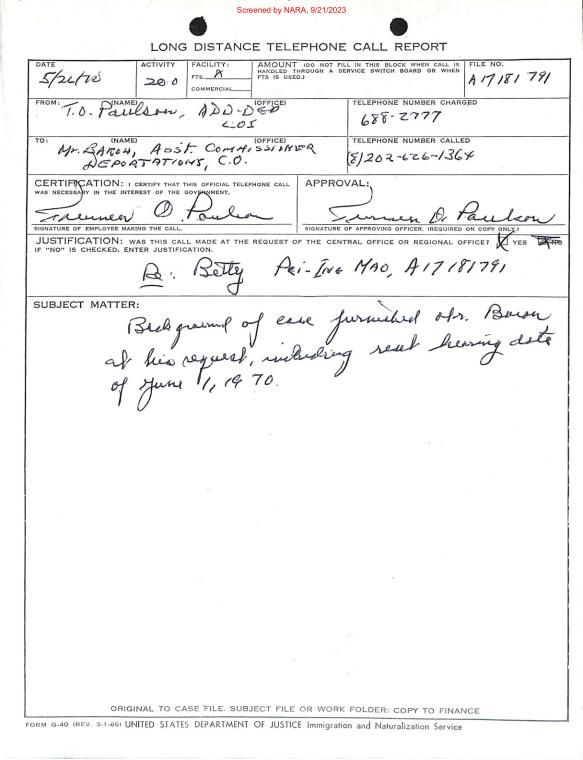 Screened by NARA, 9/21/2023
LONG DISTANCE TELEPHONE CALL REPORT
DATE
5/26/70
ACTIVITY
200
FACILITY:
FTS. X
COMMERCIAL
AMOUNT (DO NOT FILL IN THIS BLOCK WHEN CALL IS
HANDLED THROUGH A SERVICE SWITCH BOARD OR WHEN
FTS IS USED.)
FILE NO.
A17 181 791
FROM: (NAME) (OFFICE)
T.O. Paulson, ADD-DED
LOS
TELEPHONE NUMBER CHARGED
688-2777
TO: (NAME) (OFFICE)
Mr. BARON, Asst. COMMISSIONER
DEPORTATIONS, C.O.
TELEPHONE NUMBER CALLED
(8) 202-626-1364
CERTIFICATION: I CERTIFY THAT THIS OFFICIAL TELEPHONE CALL
WAS NECESSARY IN THE INTEREST OF THE GOVERNMENT.
O. Paulson
SIGNATURE OF EMPLOYEE MAKING THE CALL.
APPROVAL:
O. Paulson
SIGNATURE OF APPROVING OFFICER. (REQUIRED ON COPY ONLY.)
JUSTIFICATION: WAS THIS CALL MADE AT THE REQUEST OF THE CENTRAL OFFICE OR REGIONAL OFFICE? X YES NO
IF "NO" IS CHECKED, ENTER JUSTIFICATION.
Re: Betty Pei-Ing MAO, A17 181 791
SUBJECT MATTER:
Background of case furnished Mr. Baron
at his request, including reset hearing date
of June 1, 1970.
ORIGINAL TO CASE FILE. SUBJECT FILE OR WORK FOLDER: COPY TO FINANCE
FORM G-40 (REV. 3-1-66) UNITED STATES DEPARTMENT OF JUSTICE Immigration and Naturalization Service